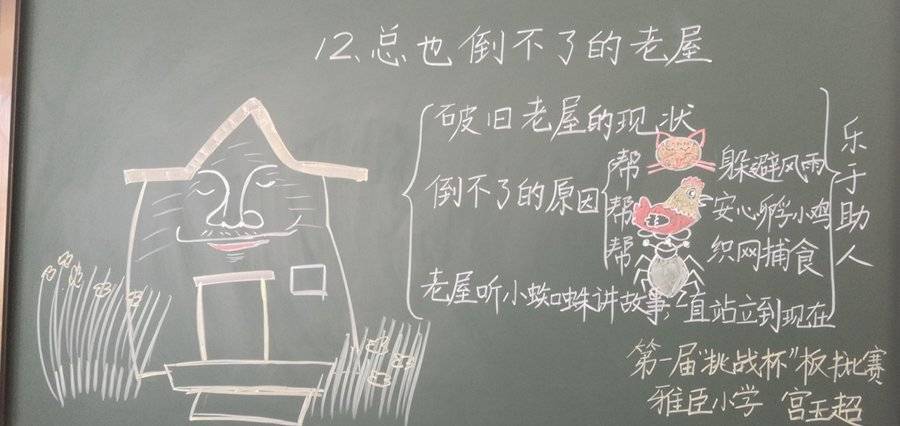 12、总也倒不了的老屋
破旧老屋的现状
倒不了的原因
帮 躲避风雨
帮 安心孵小鸡
帮 织网捕食
老屋听小蜘蛛讲故事,一直站立到现在
乐于助人
第一届"挑战杯"板书比赛
雅臣小学 宫玉超